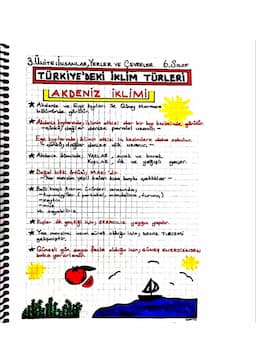 3. ÜNİTE: İNSANLAR, YERLER VE ÇEVRELER 6. SINIF
TÜRKİYE'DEKİ İKLİM TÜRLERİ
AKDENİZ İKLİMİ
Akdeniz ve Ege kıyıları ile Güney Marmara
bölümünde görülür.
Akdeniz kıyılarında; iklimin etkisi dar bir kıyı kesiminde görülür.
çünkü; dağlar denize paralel uzanır.
Ege kıyılarında; iklimin etkisi iç kesimlere daha sokulur.
çünkü; dağlar denize dik uzanır.
Akdeniz ikliminde; YAZLAR, sıcak ve kurak
KIŞLAR, ılık ve yağışlı geçer.
Doğal bitki örtüsü; MAKİ'dir.
her mevsim yeşil kalan kısa boylu çalılıklar
Belli başlı tarım ürünleri arasında;
turunçgiller (portakal, mandalina, turunç)
zeytin
ve sayılabilir.
Kışlar ılık geçtiği için, SERACILIK yaygın yapılır.
Yaz mevsimi uzun süreli olduğu için, DENİZ TURİZMİ
gelişmiştir.
Güneşli gün sayısı fazla olduğu için, GÜNEŞ ENERJİSİNDEN
bolca yararlanılır.